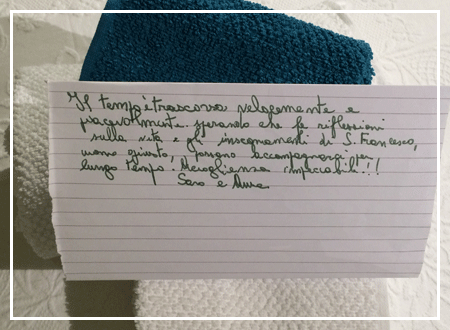 Il tempo è trascorso velocemente e
piacevolmente sperando che le riflessioni
sulla vita e gli insegnamenti di S. Francesco,
uomo giusto, possano accompagnarci per
lungo tempo. Accoglienza impeccabile!!
Saro e